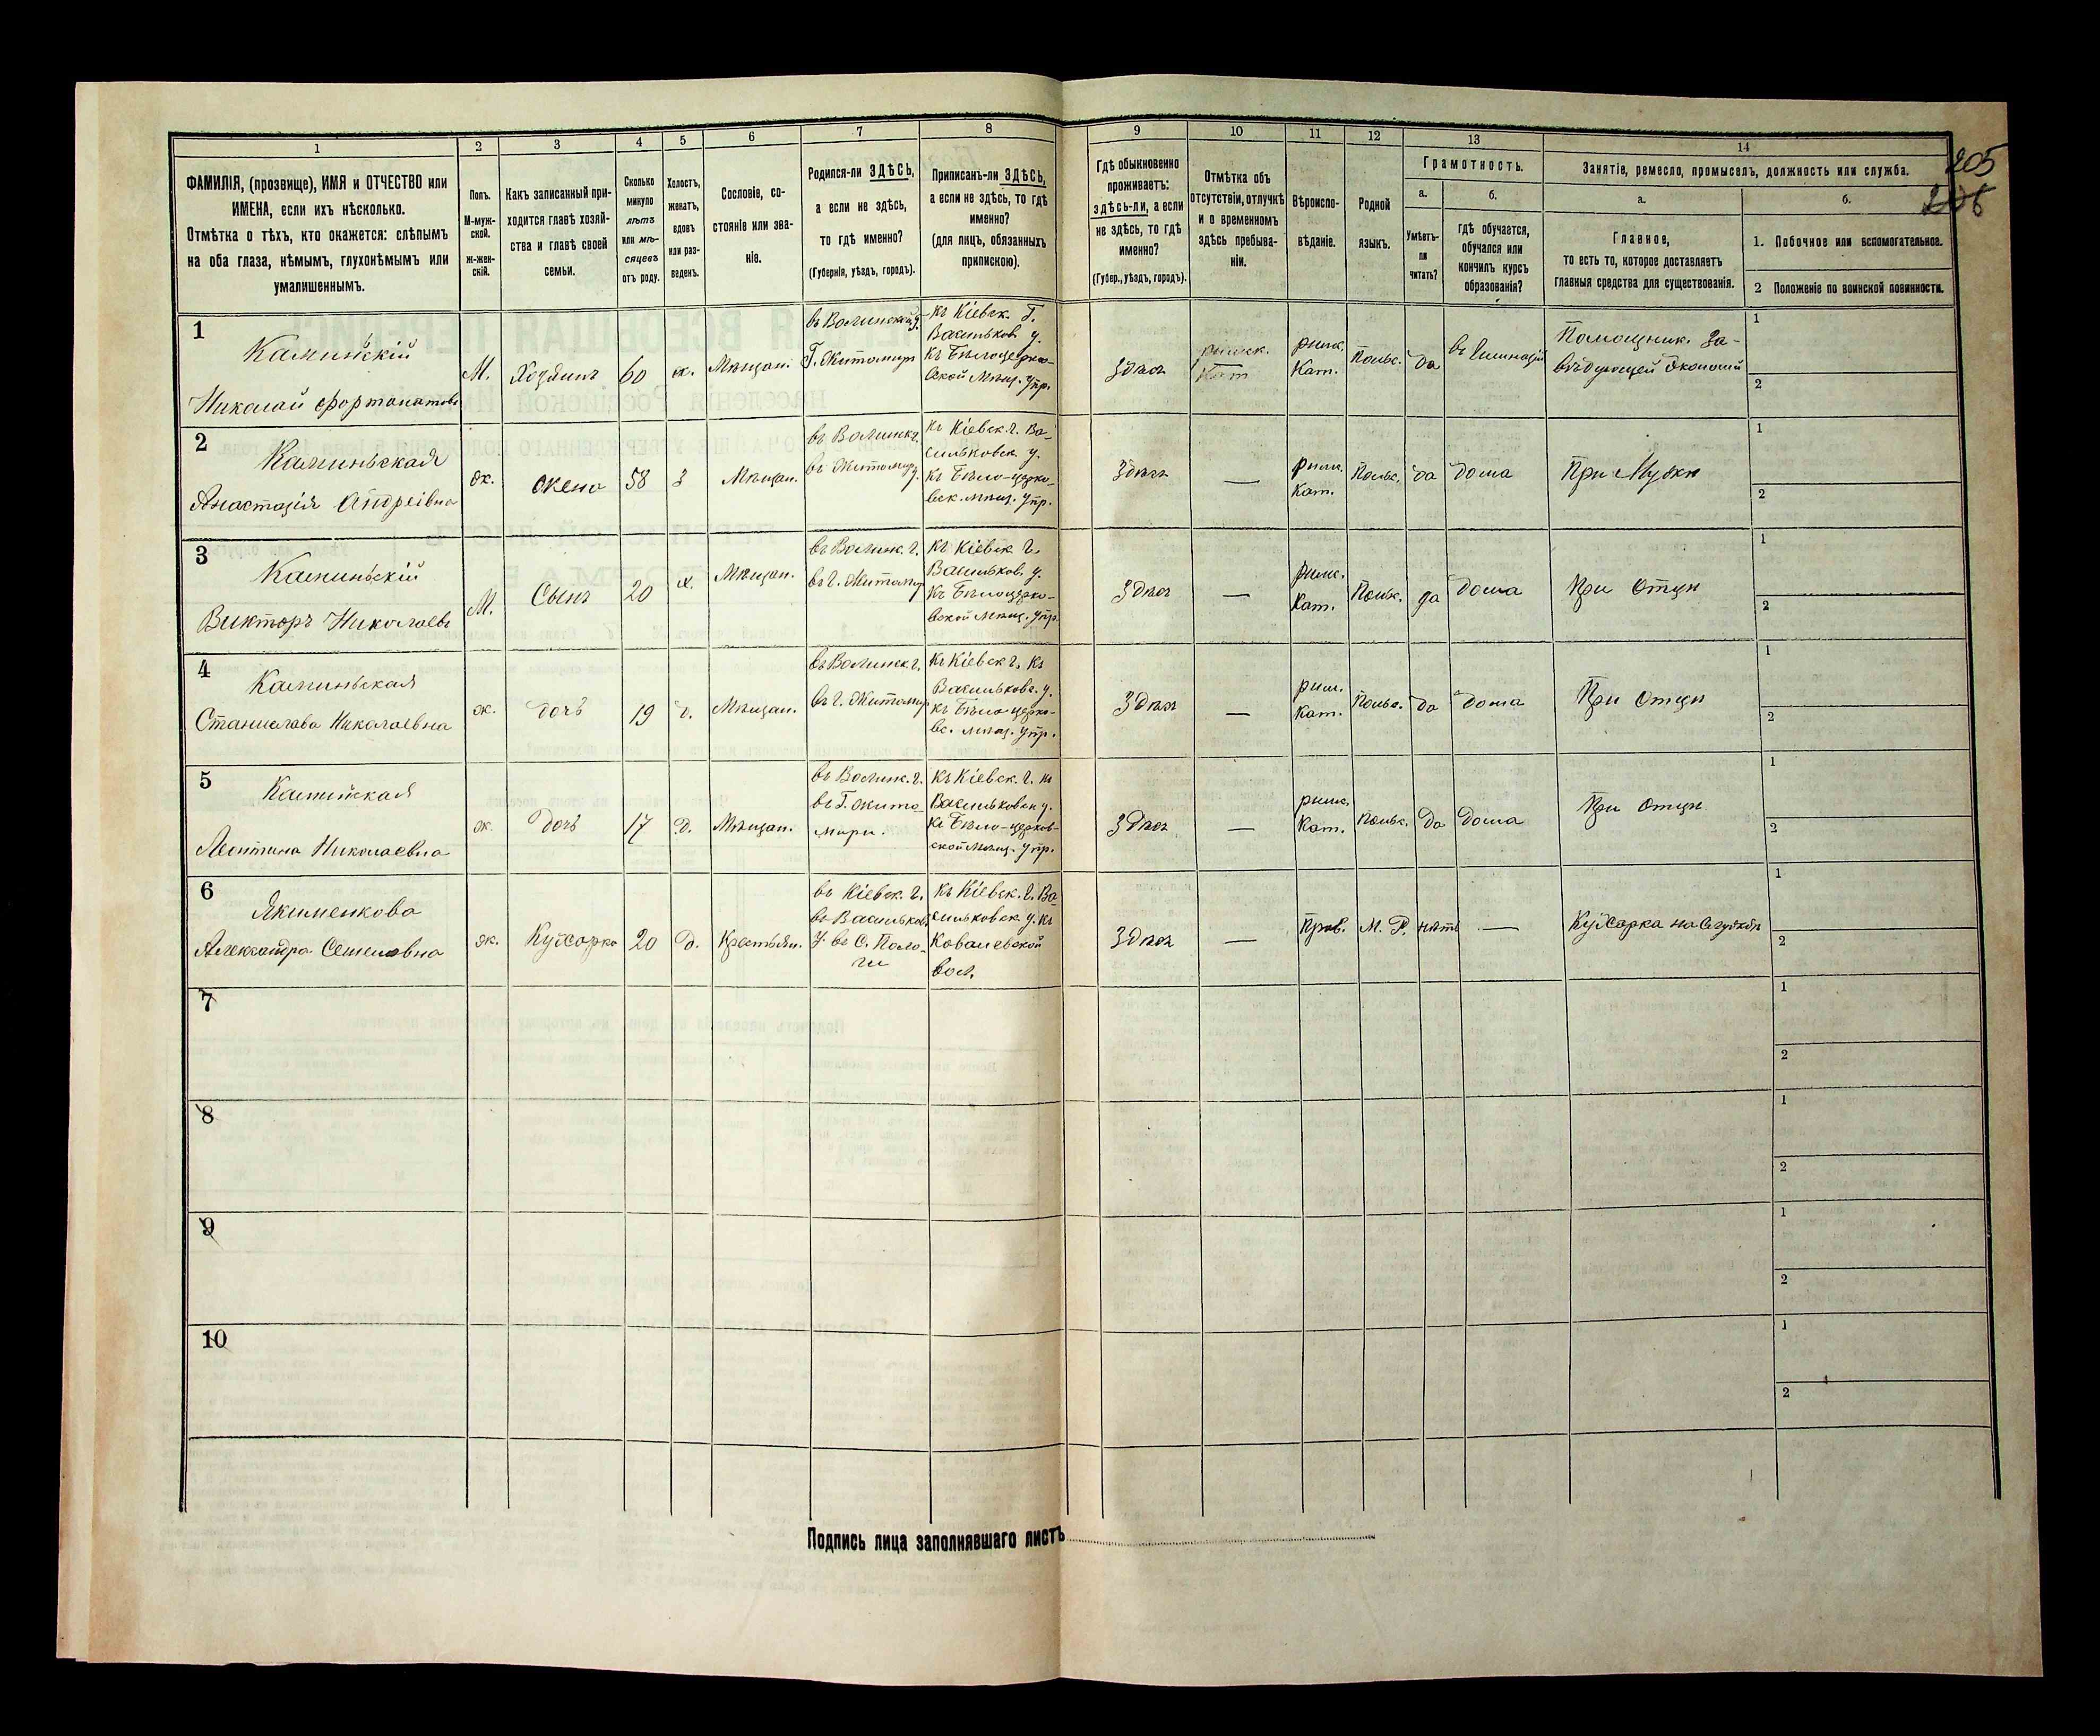 205
206
1 2 3 4 5 6 7 8 9 10 11 12 13 14
ФАМИЛІЯ, (прозвище), ИМЯ и ОТЧЕСТВО или
ИМЕНА, если ихъ нѣсколько.
Отмѣтка о тѣхъ, кто окажется: слѣпымъ
на оба глаза, нѣмымъ, глухонѣмымъ или
умалишеннымъ.
Полъ.
М-муж-
ской.
ж-жен-
скій.
Какъ записанный при-
ходится главѣ хозяй-
ства и главѣ своей
семьи.
Сколько
минуло
лѣтъ
или мѣ-
сяцевъ
отъ роду.
Холостъ,
женатъ,
вдовъ
или раз-
веденъ.
Сословіе, со-
стояніе или зва-
ніе.
Родился-ли ЗДѢСЬ,
а если не здѣсь,
то гдѣ именно?
(Губернія, уѣздъ, городъ).
Приписанъ-ли ЗДѢСЬ,
а если не здѣсь, то гдѣ
именно?
(для лицъ, обязанныхъ
припискою).
Гдѣ обыкновенно
проживаетъ:
здѣсь-ли, а если
не здѣсь, то гдѣ
именно?
(Губер., уѣздъ, городъ).
Отмѣтка объ
отсутствіи, отлучкѣ
и о временномъ
здѣсь пребыва-
ніи.
Вѣроиспо-
вѣданіе.
Родной
языкъ.
Грамотность.
а.
Умѣетъ-
ли
читать?
б.
гдѣ обучается,
обучался или
кончилъ курсъ
образованія?
Занятіе, ремесло, промыселъ, должность или служба.
а.
Главное,
то есть то, которое доставляетъ
главныя средства для существованія.
б.
1. Побочное или вспомогательное.
2 Положеніе по воинской повинности.
1
Каминьскій
Николай Фортонатовъ
М.
Хозяинъ
60
ж.
Мѣщан.
въ Волинской г.
Г. Житомир
къ Кіевск. Г.
Васильков. у.
къ Бѣлоцерко-
вской мѣщ. упр.
здѣсь
римск.
Кат
римс.
Кат.
Польс.
да
въ Гимназіи
Помощник. За-
вѣдующей Экономій
1
2
2
Каминьская
Анастазія Андреівна
ж.
жена
58
з
Мѣщан.
въ Волинск г.
въ Житомиру.
къ Кіевск. г. Ва-
сильковск у.
къ Бѣло-церко-
вск. мѣщ. упр.
здѣсь
—
Римс.
Кат.
Польс.
да
дома
При Мужи
1
2
3
Каминьскій
Викторъ Николаевъ
М.
Сынъ
20
х.
Мѣщан.
въ Волинск. г.
въ г. Житомир
къ Кіевск г.
Васильков. у.
къ Бѣлоцерко-
вской мѣщ. упр.
здѣсь
—
Римс.
Кат.
Польс.
да
дома
При Отци
1
2
4
Каминьская
Станислава Николаевна
ж.
дочь
19
д.
Мѣщан.
въ Волинск г.
въ г. Житомир
къ Кіевск г. къ
Васильковс. у.
къ Бѣло-церко-
вс. мѣщ. упр.
здѣсь
—
Рим.
Кат.
Польс.
да
дома
При Отци
1
2
5
Каминская
Леонтина Николаевна
ж.
дочь
17
д.
Мѣщан.
въ Волинс. г.
въ Г. Жито-
мири.
къ Кіевск. г. къ
Васильковск у.
къ Бѣло-церков-
ской мѣщ. упр.
здѣсь
—
римс.
Кат.
Польс.
да
дома
При Отци
1
2
6
Якименкова
Александра Семеновна
ж.
Кухарка
20
д.
Крестьян.
въ Кіевск. г.
въ Васильков.
у. въ С. Поло-
ги
къ Кіевск. г. Ва-
сильковск. у. къ
Ковалевской
вол.
здѣсь
—
Прав.
М. Р.
нѣтъ
—
Кухарка на Службѣ
1
2
7
1
2
8
1
2
9
1
2
10
1
2
Подпись лица заполнявшаго листъ